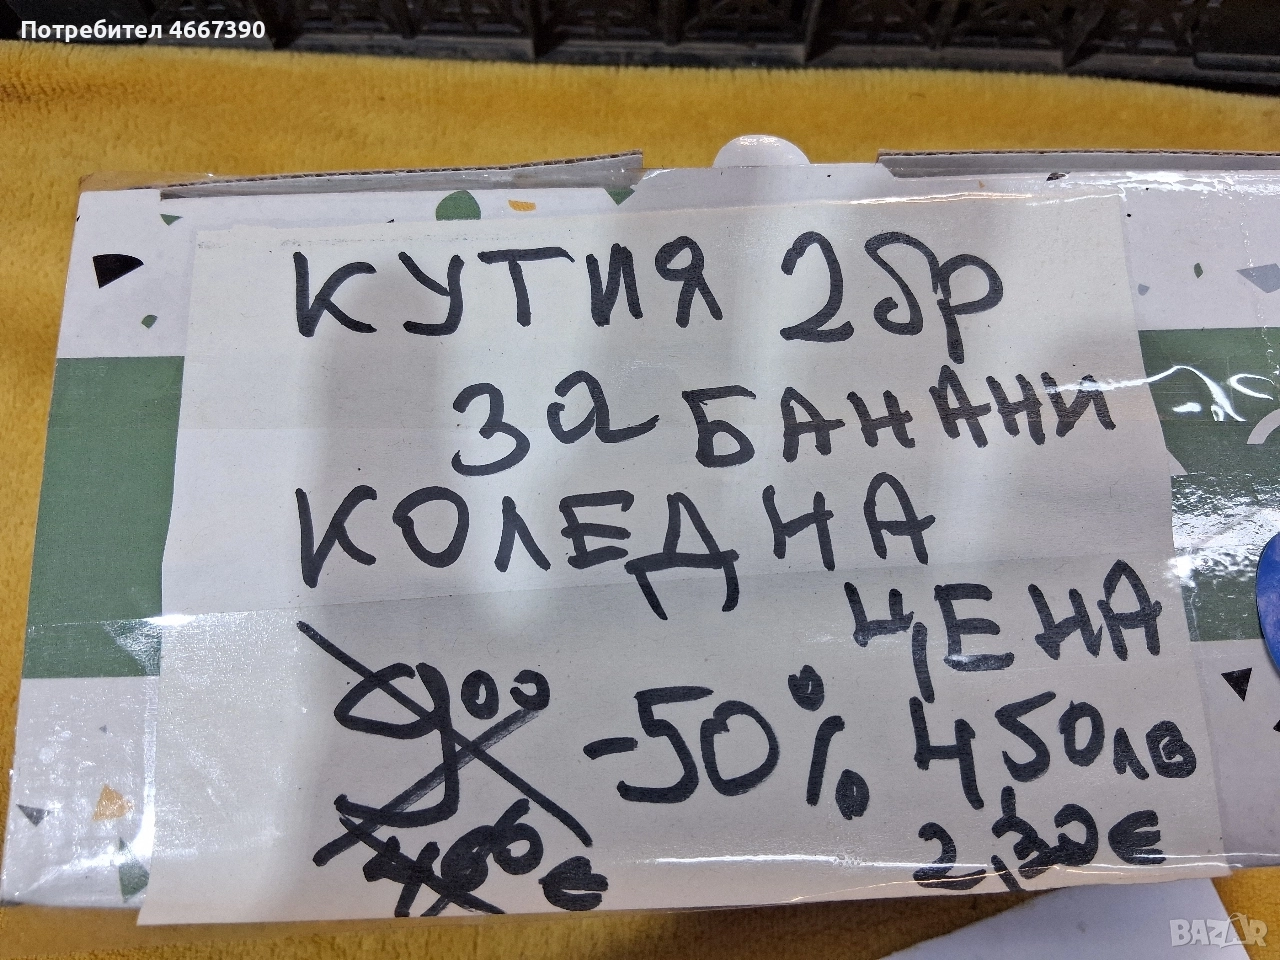 Потребител 4667390
КУТИЯ 2бр
За БАНАНИ
КОЛЕДНА
ЦЕНА
900 -50% 450лв
460€ 2,30€
BAZAR